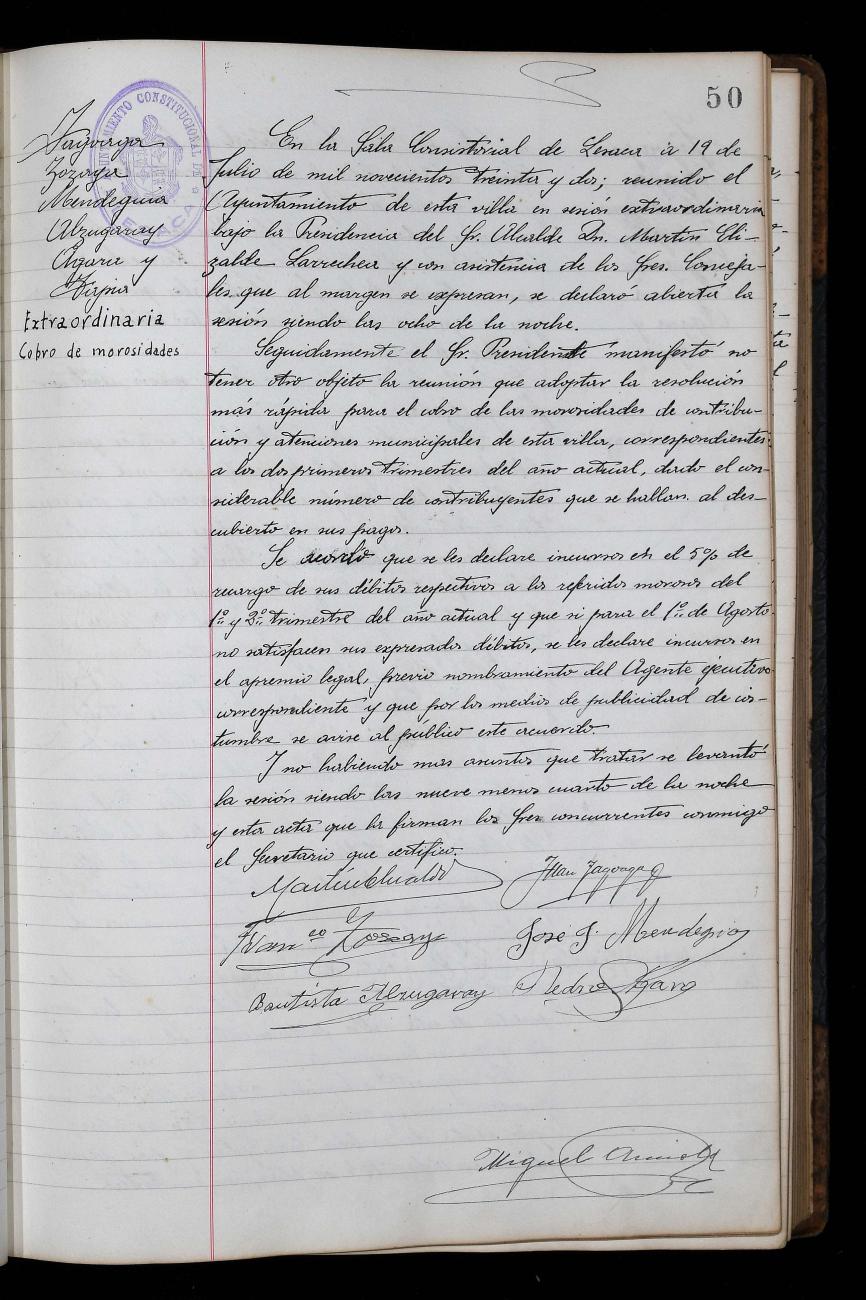 50
AYUNTAMIENTO CONSTITUCIONAL DE
LESACA
Zozaya
Mendeguia
Alzugaray
Agara y
Tapia
Extraordinaria
Cobro de morosidades
En la Sala Consistorial de Lesaca a 19 de
Julio de mil novecientos treinta y dos; reunido el
Ayuntamiento de esta villa en sesión extraordinaria
bajo la Presidencia del Sr. Alcalde Dn. Martín Eli-
zalde Larrechea y con asistencia de los Sres. Conceja-
les que al margen se expresan, se declaró abierta la
sesión siendo las ocho de la noche.
Seguidamente el Sr. Presidente manifestó no
tener otro objeto la reunión que adoptar la resolución
más rápida para el cobro de las morosidades de contribu-
ción y atenciones municipales de esta villa, correspondientes
a los dos primeros trimestres del año actual, dado el con-
siderable número de contribuyentes que se hallan al des-
cubierto en sus pagos.
Se acordó que se les declare incursos en el 5% de
recargo de sus débitos respectivos a los referidos morosos del
1º y 2º trimestre del año actual y que si para el 1º de Agosto
no satisfacen sus expresados débitos, se les declare incursos en
el apremio legal, previo nombramiento del Agente ejecutivo
correspondiente y que por los medios de publicidad de cos-
tumbre se avise al público este acuerdo.
Y no habiendo mas asuntos que tratar se levantó
la sesión siendo las nueve menos cuarto de la noche
y esta acta que la firman los Sres concurrentes conmigo
el Secretario que certifico.
Martin Elizalde
Franco Zozaya
José J. Mendeguia
Bautista Alzugaray
Pedro
Miguel